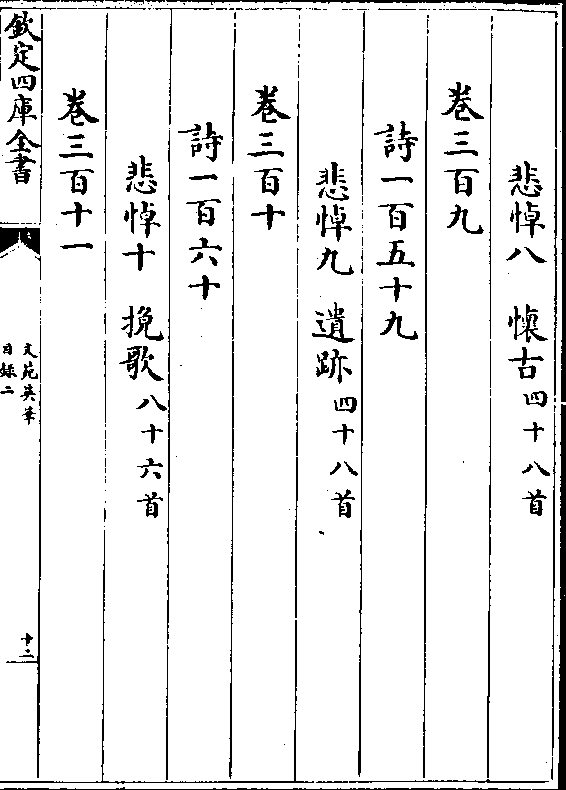 悲悼八　懐古四十八首
卷三百九
詩一百五十九
悲悼九　遺跡四十八首
卷三百十
詩一百六十
悲悼十　挽歌八十六首
卷三百十一
欽定四庫全書
文苑英華
目録二
十二